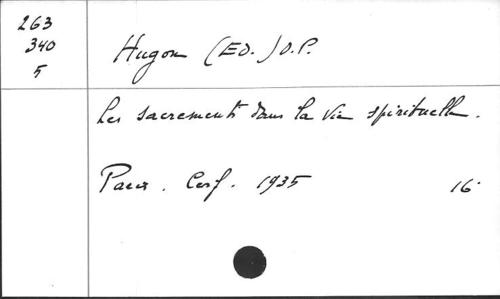 263
340
5
Hugon (ED.) O.P.
Les sacrements dans la vie spirituelle.
Paris. Cerf. 1935 16